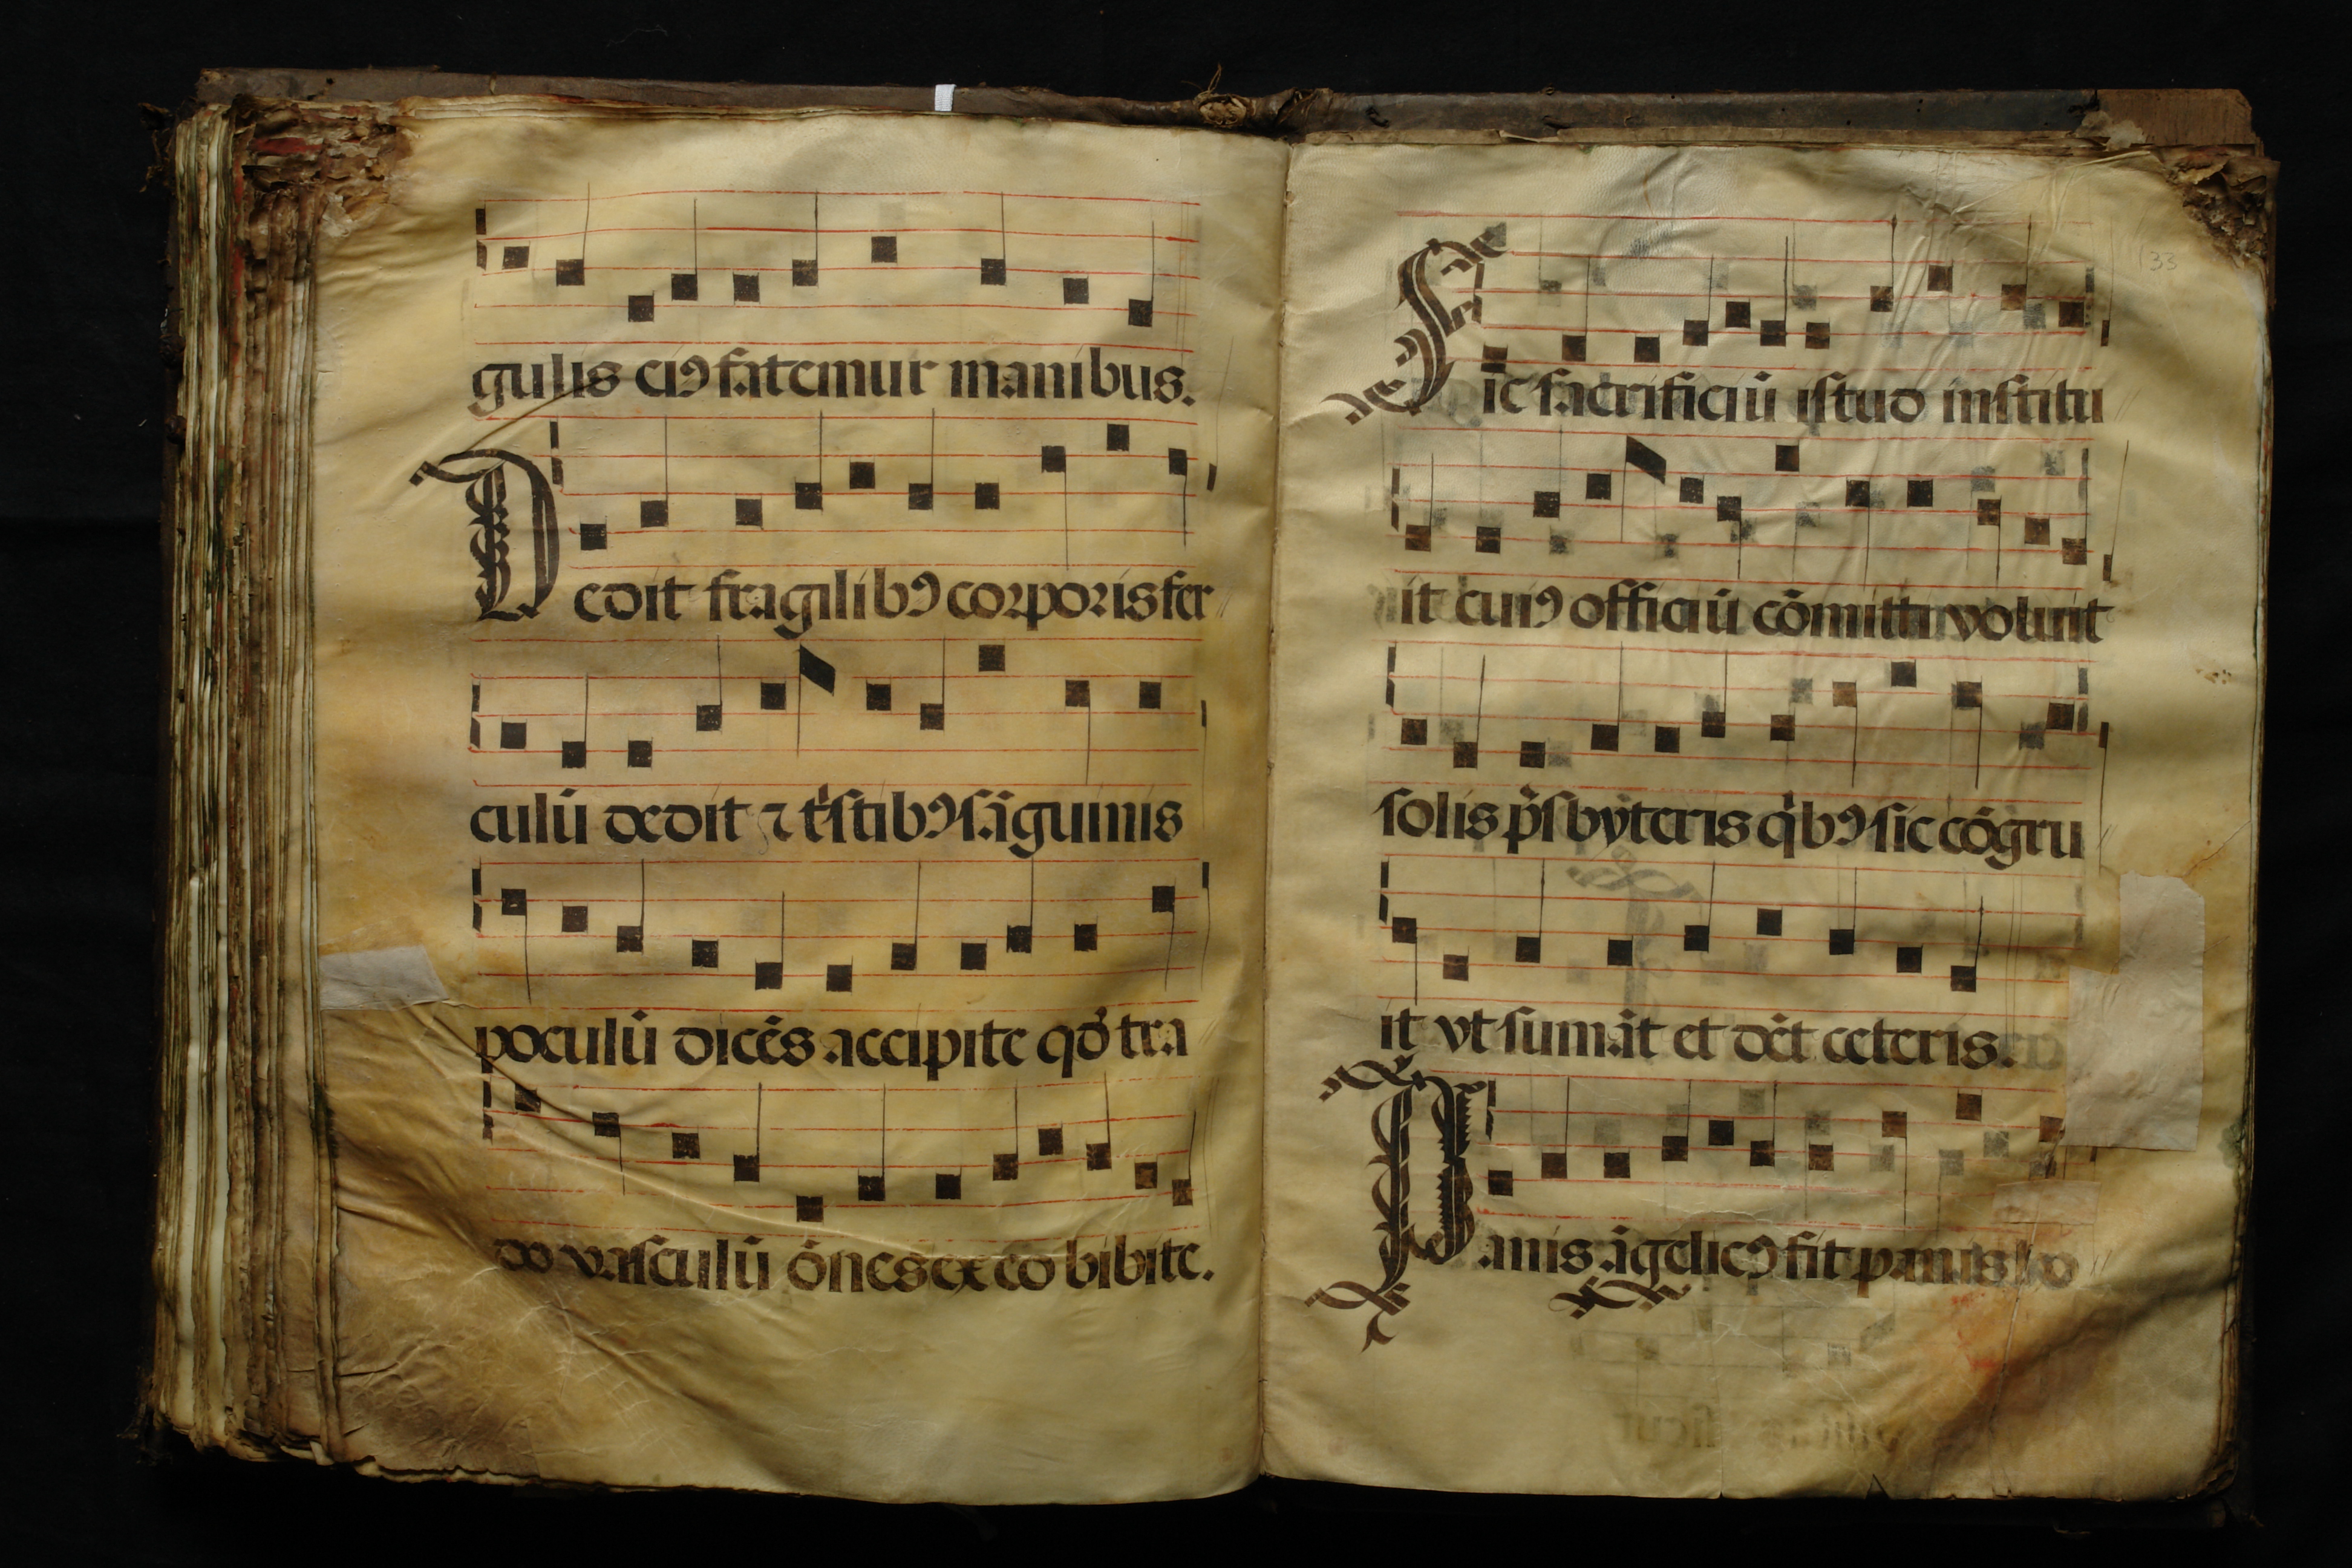 gulis eiꝰ fatemur manibus.
Dedit fragilibꝰ corporis fer
culū dedit ⁊ tͥstibꝰ sāguinis
poculū dicēs accipite qđ tra
do vasculū ōnes ex eo bibite.
133
Sic sacrificiū istud institu
it cuiꝰ officiū cōmitti voluit
solis p̄sbyteris qͥbꝰ sic cōgru
it vt sumāt et dēt ceteris.
Panis āgelicꝰ fit panis ho